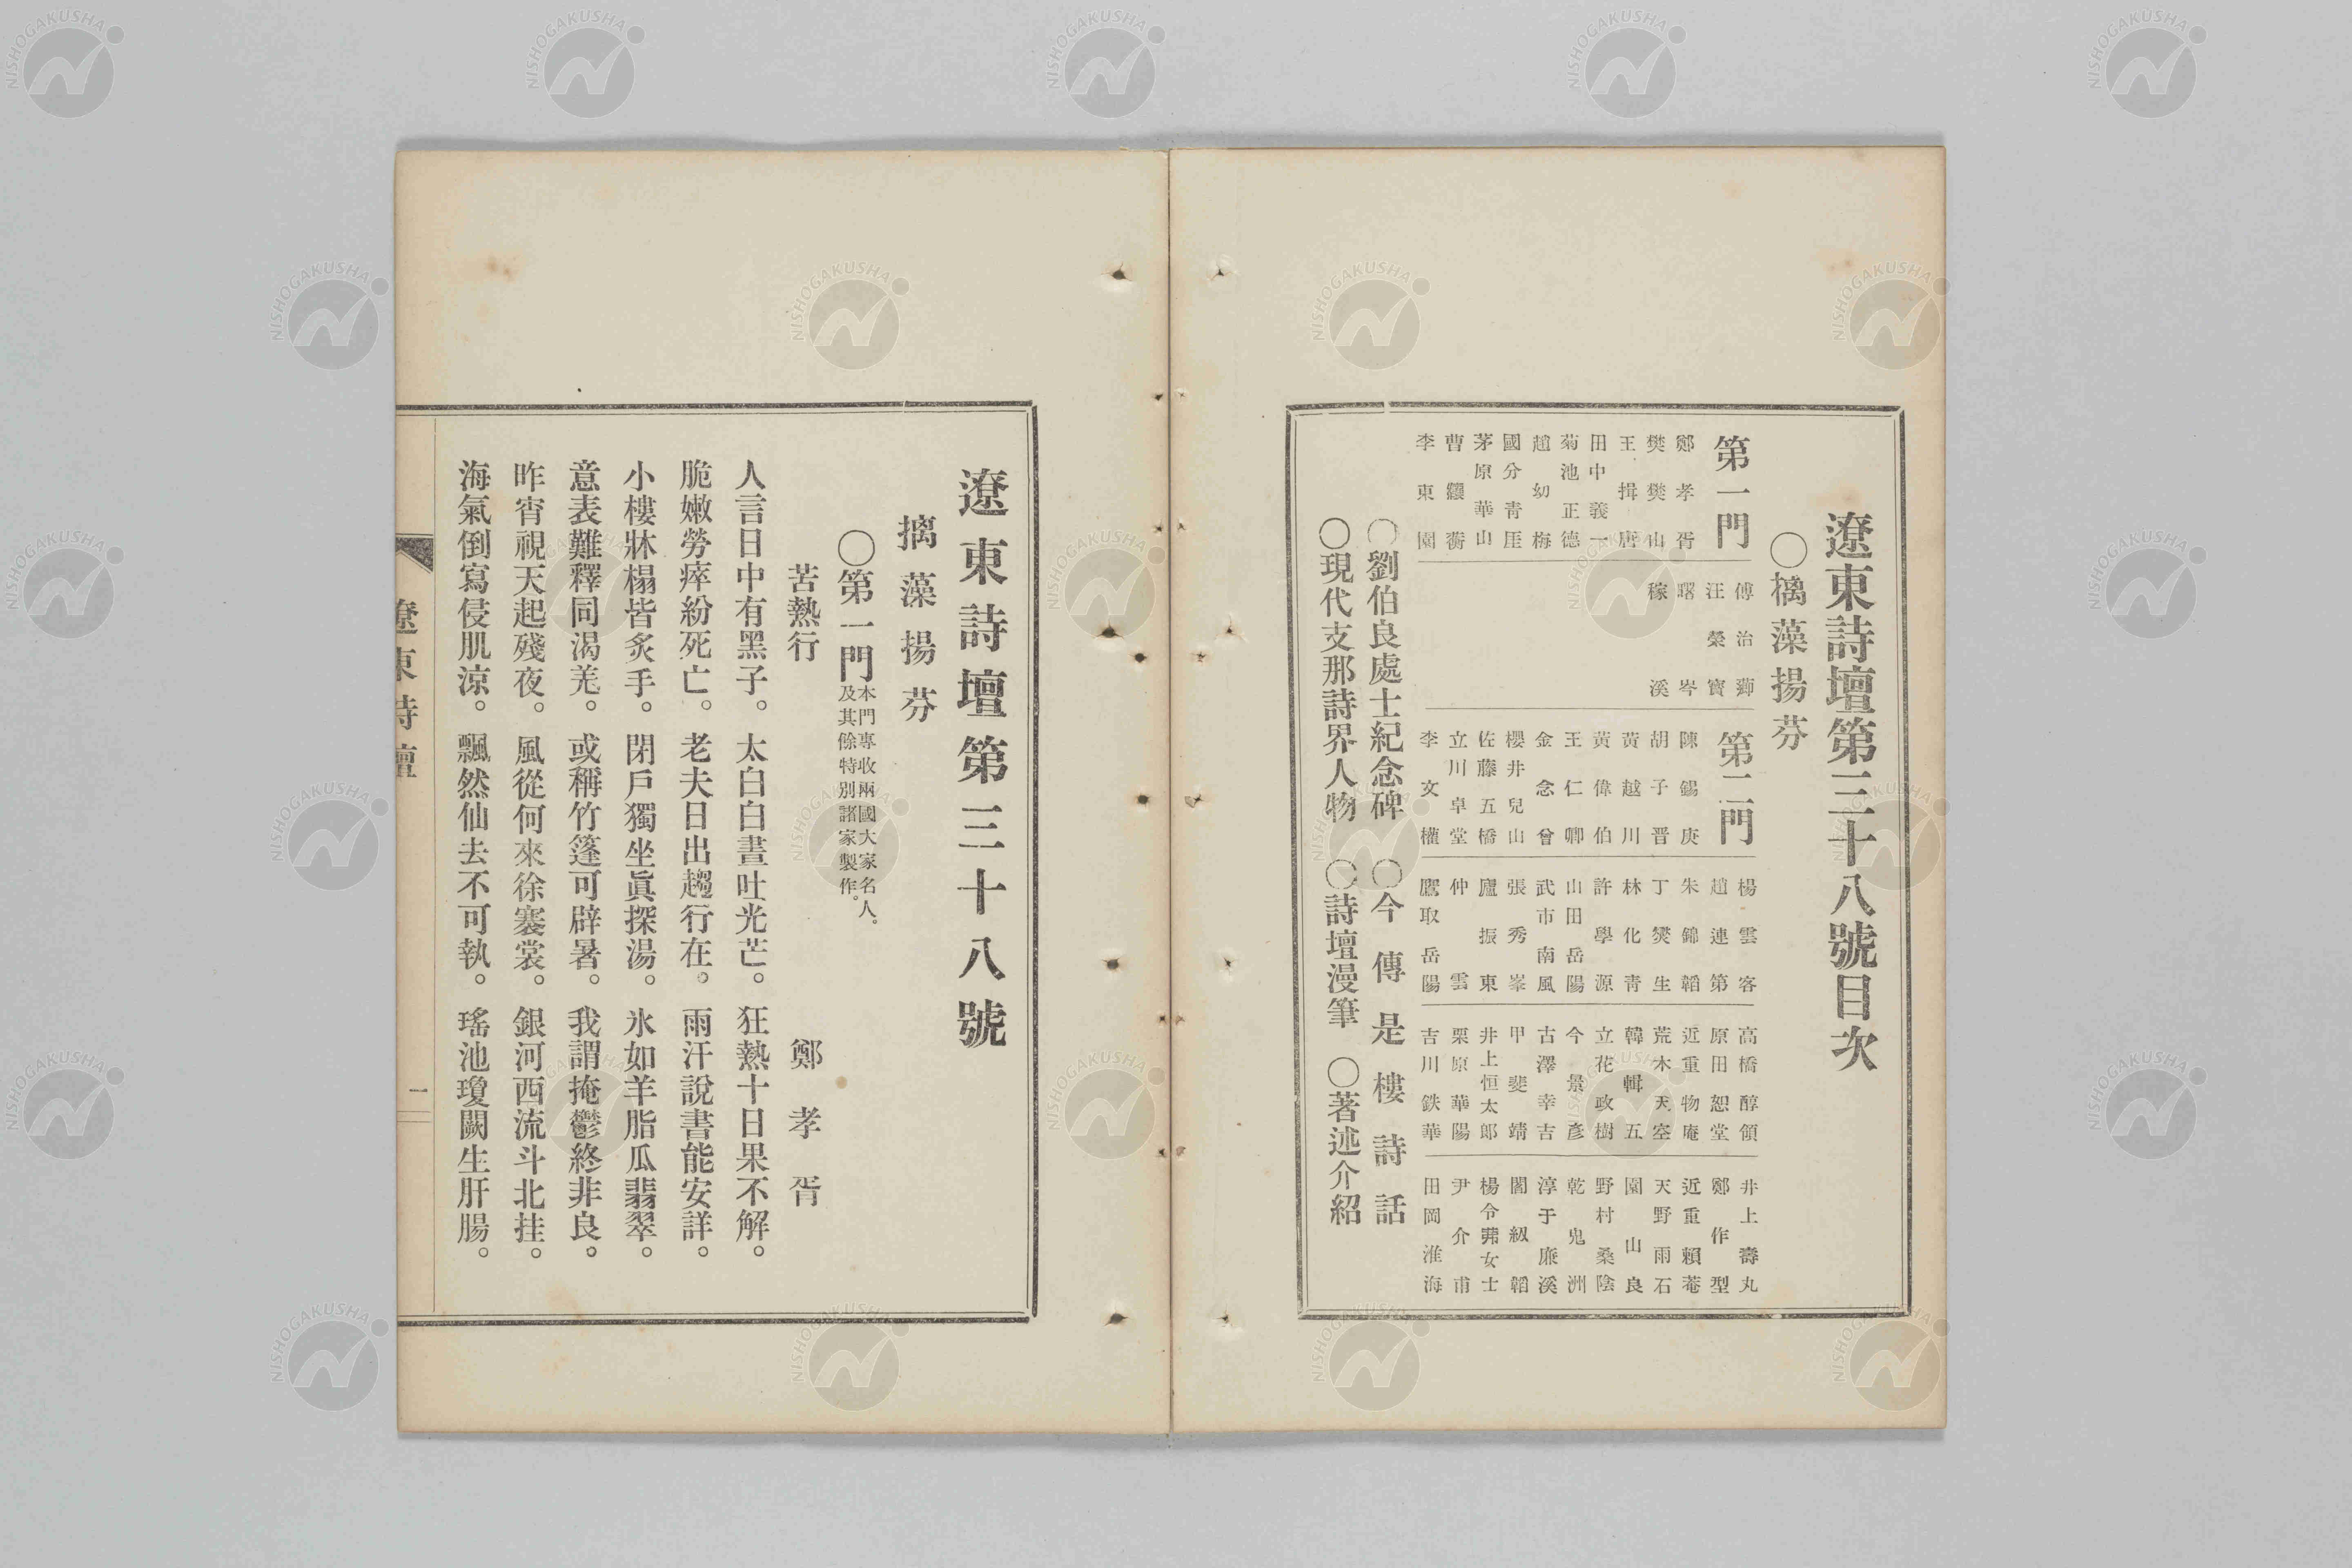 遼東詩壇第三十八號目次
○摛藻揚芬
第一門
鄭孝胥
樊樊山
王揖唐
田中義一
菊池正德
趙幼梅
國分青厓
茅原華山
曹纕蘅
李東園
傅治薌
汪榮寶
曙岑
稼溪
第二門
陳錫庚
胡子晋
黃越川
黃偉伯
王仁卿
金念曾
櫻井兒山
佐藤五橋
立川卓堂
李文權
楊雲客
趙連第
朱錦韜
丁爕生
林化青
許學源
山田岳陽
武市南風
張秀峯
廬振東
仲雲
鷹取岳陽
高橋醇領
原田恕堂
近重物庵
荒木天空
韓輯五
立花政樹
今景彥
古澤幸吉
甲斐靖
井上恒太郎
栗原華陽
吉川鉄華
井上壽丸
鄭作型
近重賴菴
天野雨石
園山良
野村桑陰
乾鬼洲
淳于廉溪
閻紉韜
楊令茀女士
尹介甫
田岡淮海
○劉伯良處士紀念碑 ○今傳是樓詩話
○現代支那詩界人物 ○詩壇漫筆 ○著述介紹
遼東詩壇第三十八號
摛藻揚芬
○第一門 本門專收兩國大家名人。
及其餘特別諸家製作。
苦熱行 鄭孝胥
人言日中有黑子。太白白晝吐光芒。狂熱十日果不解。
脆嫩勞瘁紛死亡。老夫日出趨行在。雨汗說書能安詳。
小樓牀榻皆炙手。閉戶獨坐眞探湯。氷如羊脂瓜翡翠。
意表難釋同渴羌。或稱竹篷可辟暑。我謂掩鬱終非良。
昨宵視天起殘夜。風從何來徐褰裳。銀河西流斗北挂。
海氣倒寫侵肌涼。飄然仙去不可執。瑤池瓊闕生肝腸。
遼東詩壇
一
NISHOGAKUSHA